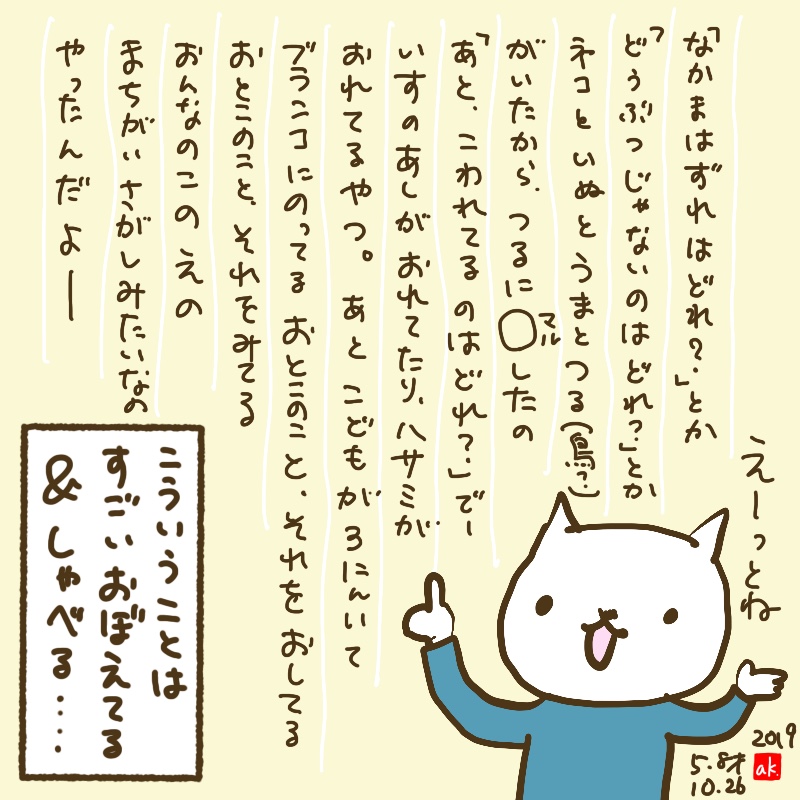 えーっとね
「なかまはずれはどれ?」とか
「どうぶつじゃないのはどれ?」とか
ネコといぬとうまとつる(鳥?)
がいたから、つるに○マルしたの
「あと、こわれてるのはどれ?」でー
いすのあしがおれてたり、ハサミが
おれてるやつ。あとこどもが3にんいて
ブランコにのってるおとこのこと、それをおしてる
おとこのこと、それをみてる
おんなのこのえの
まちがいさがしみたいなの
やったんだよー
こういうことは
すごいおぼえてる
&しゃべる‥‥
2019
5.8才
10.26
ak.